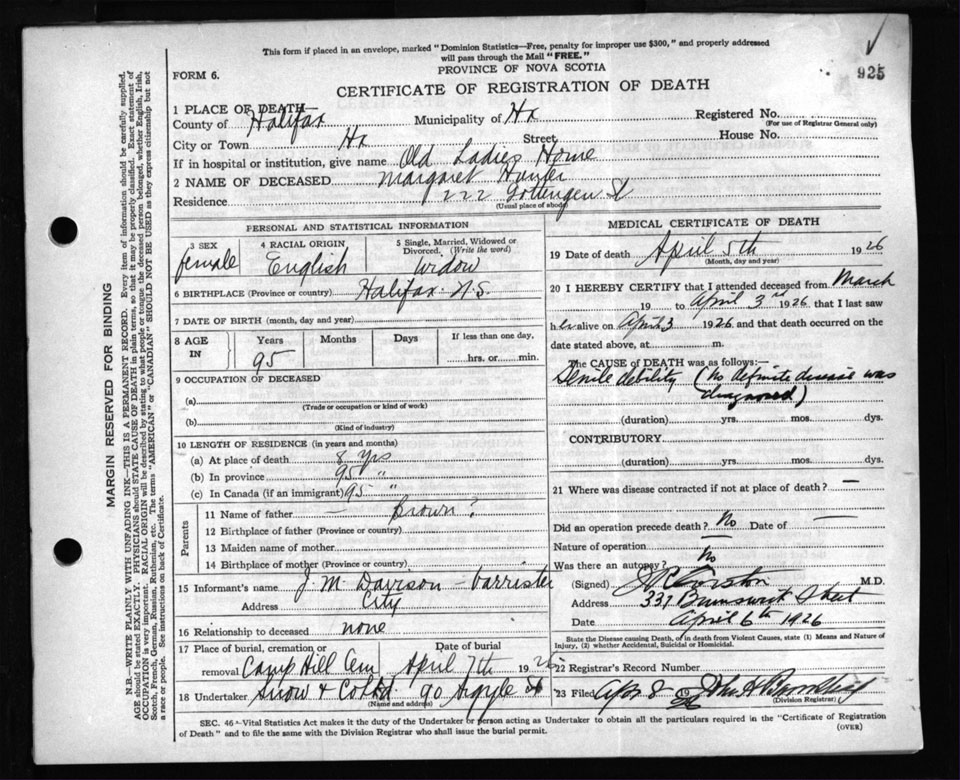 This form if placed in an envelope, marked "Dominion Statistics—Free, penalty for improper use $300," and properly addressed
will pass through the Mail "FREE."
925
FORM 6.
PROVINCE OF NOVA SCOTIA
CERTIFICATE OF REGISTRATION OF DEATH
1 PLACE OF DEATH
County of Halifax Municipality of Hx Registered No.
(For use of Registrar General only)
City or Town Hx Street House No.
If in hospital or institution, give name Old Ladies Home
2 NAME OF DECEASED Margaret Hunter
Residence 222 Gottengen St
(Usual place of abode)
PERSONAL AND STATISTICAL INFORMATION
3 SEX female
4 RACIAL ORIGIN English
5 Single, Married, Widowed or Divorced. (Write the word) widow
6 BIRTHPLACE (Province or country) Halifax N.S.
7 DATE OF BIRTH (month, day and year)
8 AGE IN Years 95 Months Days If less than one day, hrs. or min.
9 OCCUPATION OF DECEASED
(a)
(Trade or occupation or kind of work)
(b)
(Kind of industry)
10 LENGTH OF RESIDENCE (in years and months)
(a) At place of death 8 yrs
(b) In province 95 "
(c) In Canada (if an immigrant) 95 "
Parents
11 Name of father — Brown?
12 Birthplace of father (Province or country)
13 Maiden name of mother
14 Birthplace of mother (Province or country)
15 Informant's name J. M. Davison - barrister
Address City
16 Relationship to deceased none
17 Place of burial, cremation or removal Camp Hill Cem Date of burial April 7th 1926
18 Undertaker Snow & Co Ltd. 90 Argyle St
(Name and address)
MEDICAL CERTIFICATE OF DEATH
19 Date of death April 5th 1926
(Month, day and year)
20 I HEREBY CERTIFY that I attended deceased from March
19 to April 3rd 1926 that I last saw
her alive on April 3 1926 and that death occurred on the
date stated above, at m.
The CAUSE of DEATH was as follows:—
Senile debility (No definite disease was
diagnosed)
(duration) yrs. mos. dys.
CONTRIBUTORY
(duration) yrs. mos. dys.
21 Where was disease contracted if not at place of death? —
Did an operation precede death? No Date of —
Nature of operation —
Was there an autopsy? No
(Signed) M.D.
Address 331 Brunswick Street
Date April 6th 1926
State the Disease causing Death, or in death from Violent Causes, state (1) Means and Nature of
Injury, (2) whether Accidental, Suicidal or Homicidal.
22 Registrar's Record Number
23 Filed Apr 8 1926
(Division Registrar)
SEC. 46—Vital Statistics Act makes it the duty of the Undertaker or person acting as Undertaker to obtain all the particulars required in the "Certificate of Registration
of Death" and to file the same with the Division Registrar who shall issue the burial permit.
(OVER)
MARGIN RESERVED FOR BINDING
N.B.—WRITE PLAINLY WITH UNFADING INK—THIS IS A PERMANENT RECORD. Every item of information should be carefully supplied.
AGE should be stated EXACTLY. PHYSICIANS should STATE CAUSE OF DEATH in plain terms, so that it may be properly classified. Exact statement of
OCCUPATION is very important. RACIAL ORIGIN will be described by stating to what people or tongue the deceased person belonged, whether English, Irish,
Scotch, French, German, Russian, Ruthenian, etc. The terms "AMERICAN" or "CANADIAN" SHOULD NOT BE USED as they express citizenship but not
a race or people. See instructions on back of Certificate.